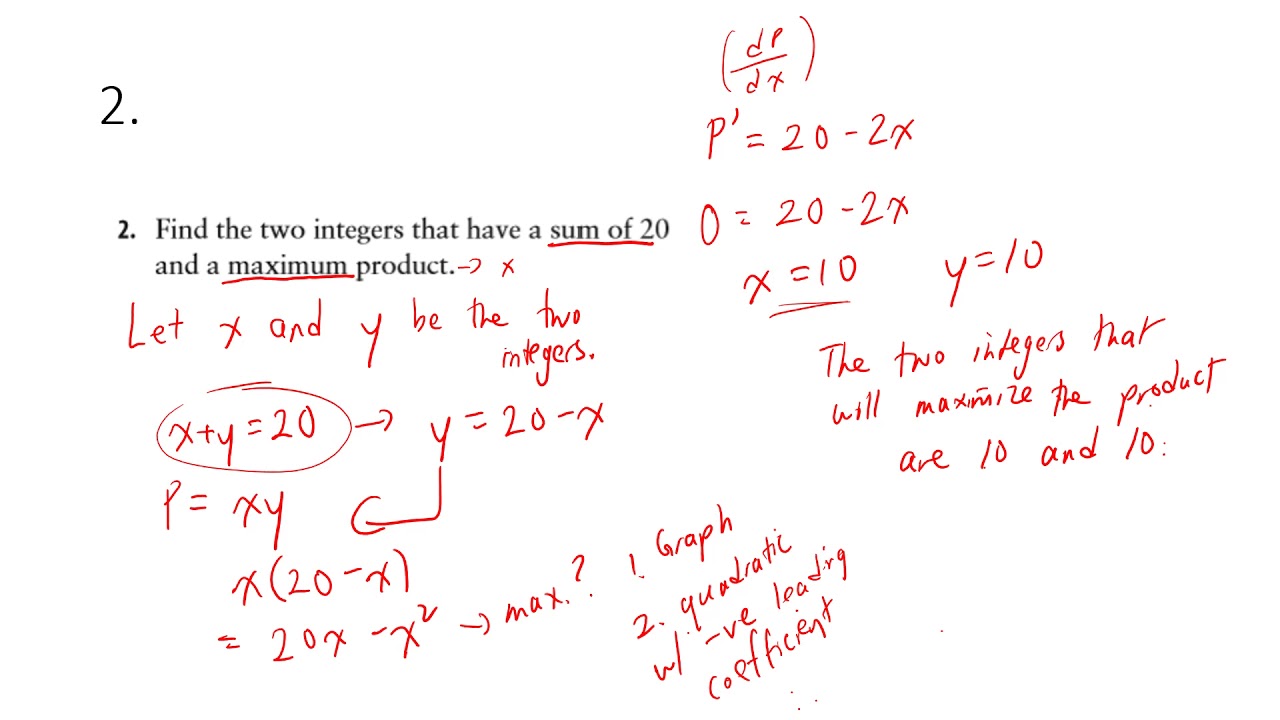 2.
2. Find the two integers that have a sum of 20
and a maximum product. → x
Let x and y be the two
integers.
x+y=20 → y=20-x
P= xy
x(20-x)
= 20x -x² → max.?
1. Graph
2. quadratic
w/ -ve leading
coefficient
(dP/dx)
P'= 20-2x
0= 20-2x
x=10 y=10
The two integers that
will maximize the product
are 10 and 10.